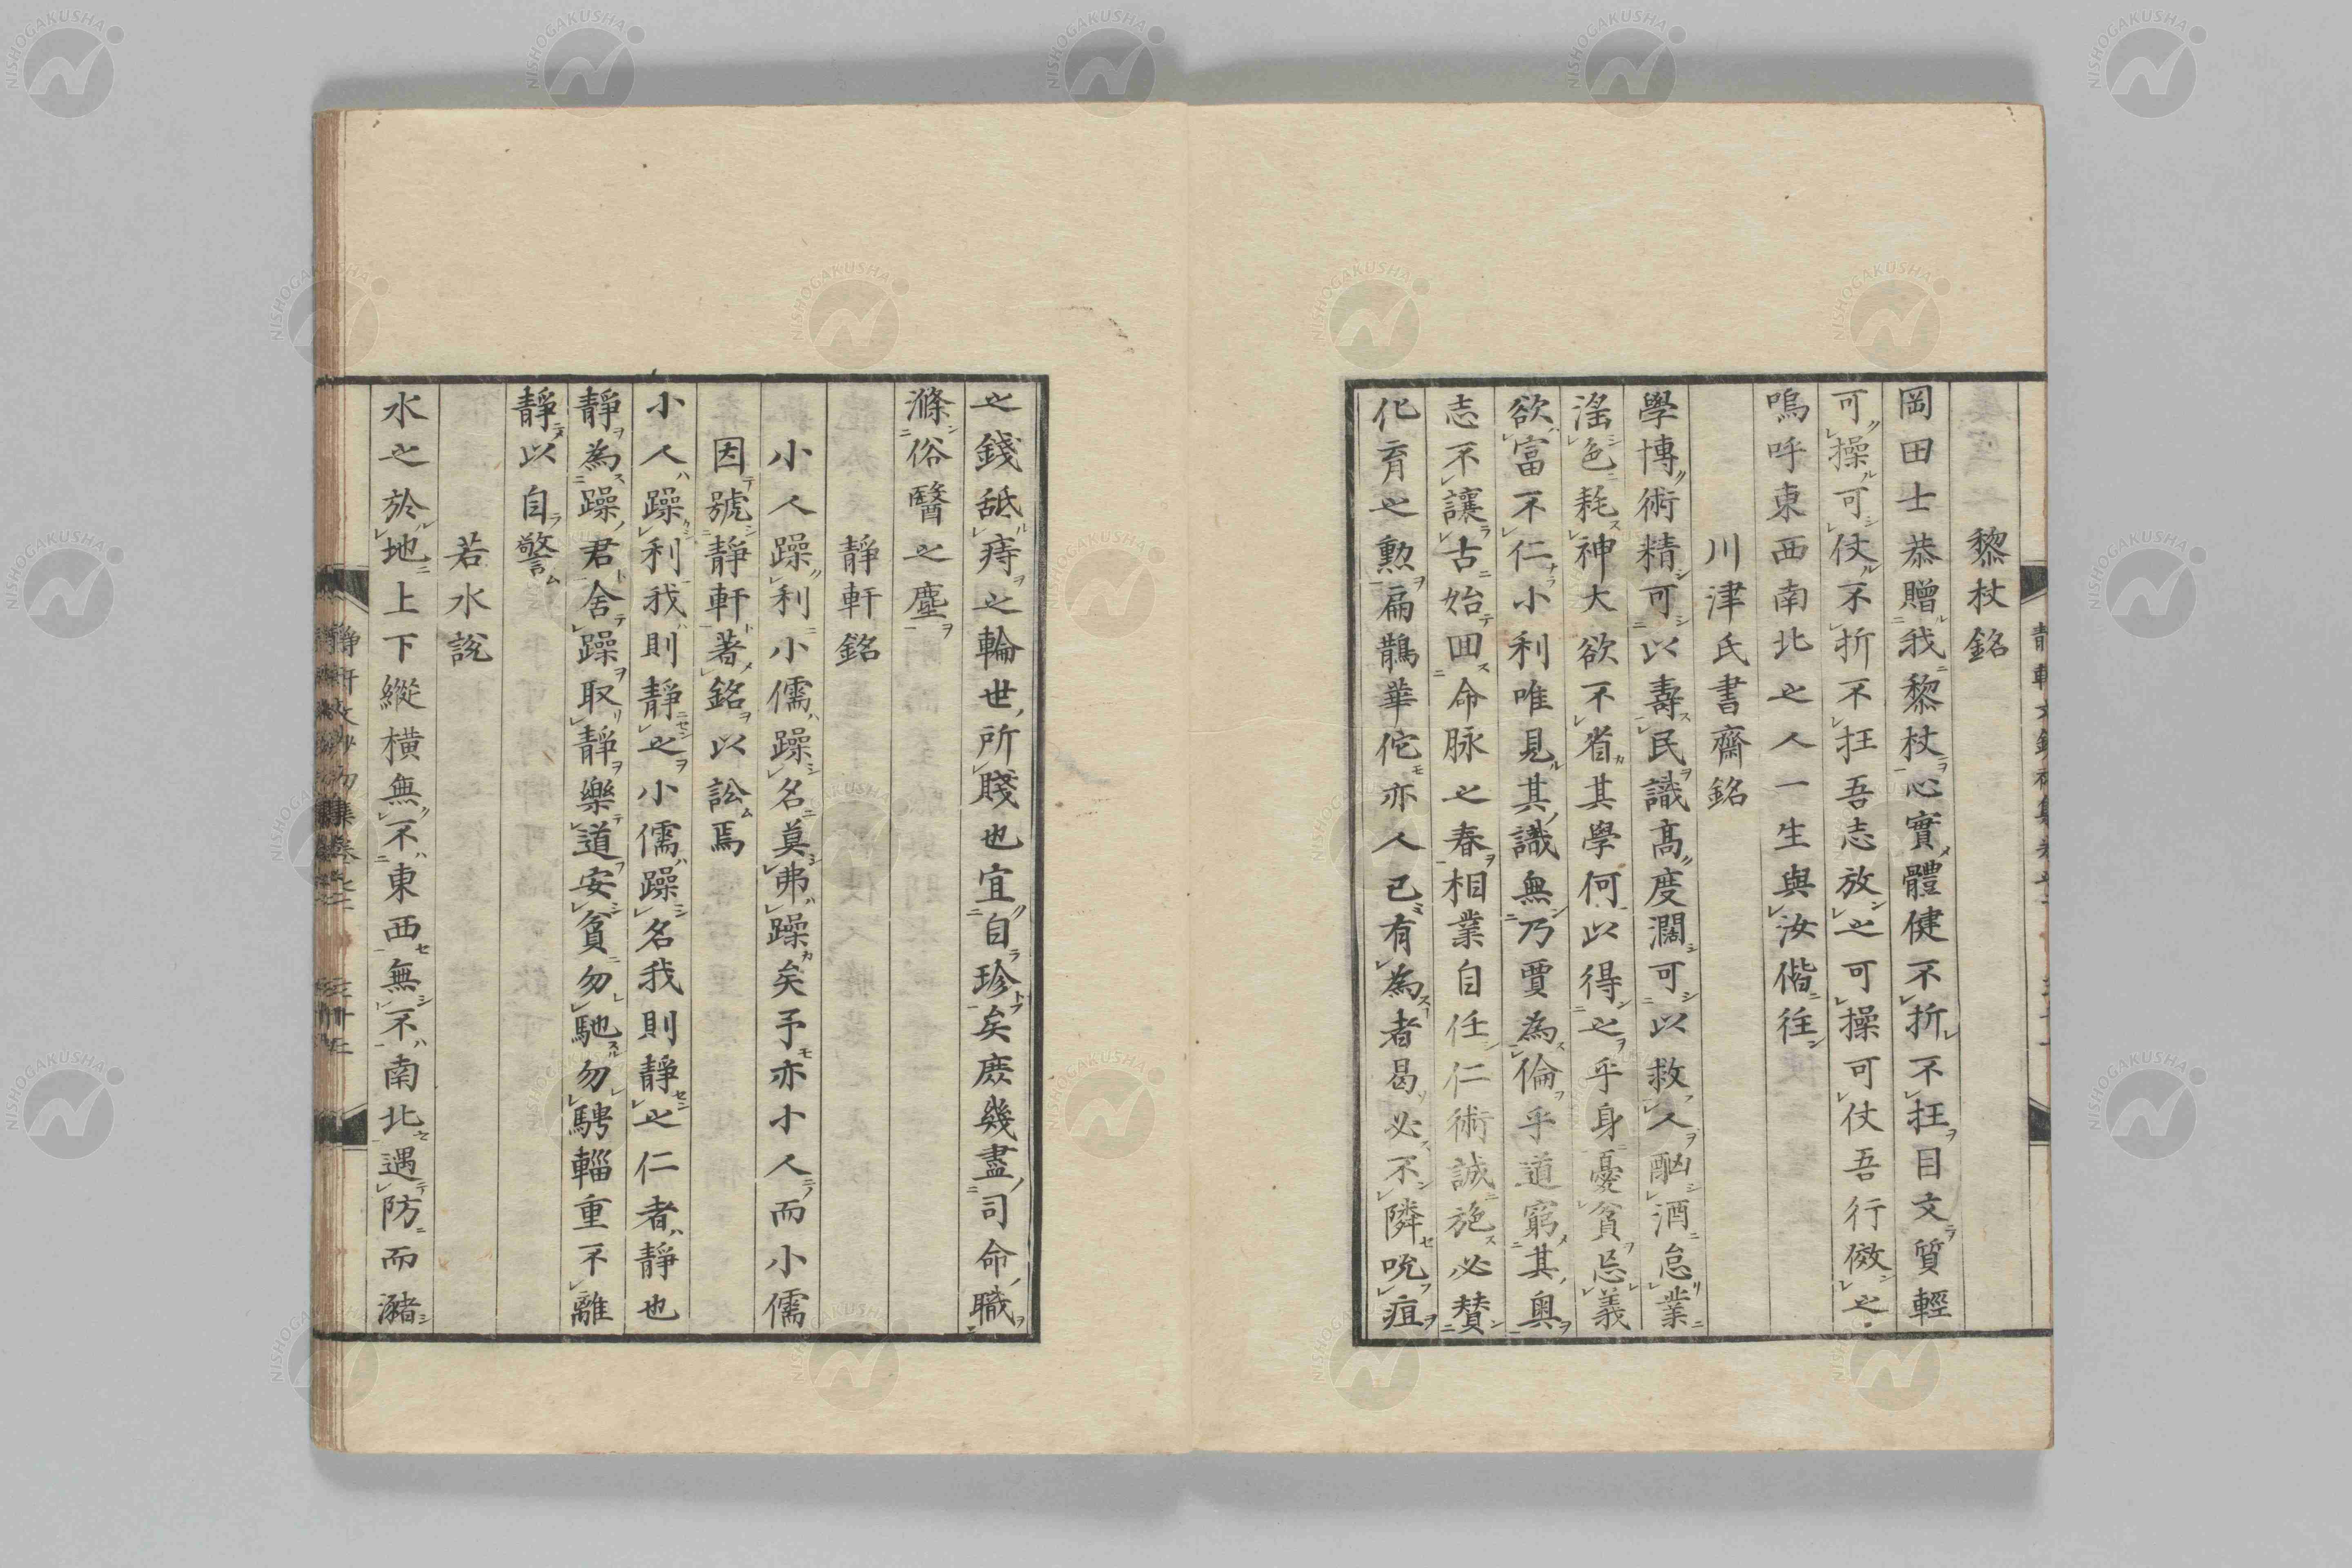 黎杖銘
岡田士恭贈我黎杖心實體健不折不枉目文質輕
可操可仗不折不枉吾志放之可操可仗吾行倣之
嗚呼東西南北之人一生與汝偕往
川津氏書齋銘
學博術精可以壽民識高度濶可以救人酗酒怠業
滛色耗神大欲不省其學何以得之乎身憂貧忘義
欲富不仁小利唯見其識無乃賈為倫乎道窮其奥
志不讓古始回命脉之春相業自任仁術誠施必賛
化育之勲扁鵲華佗亦人已有為者曷必不隣吮疽
之錢舐痔之輪世所賤也宜自珍矣庶幾盡司命職
滌俗醫之塵
靜軒銘
小人躁利小儒躁名莫弗躁矣予亦小人而小儒
因號靜軒著銘以訟焉
小人躁利我則靜之小儒躁名我則靜之仁者靜也
靜為躁君舍躁取靜樂道安貧勿馳勿騁輜重不離
靜以自警
若水說
水之於地上下縱横無不東西無不南北遇防而瀦
NISHOGAKUSHA